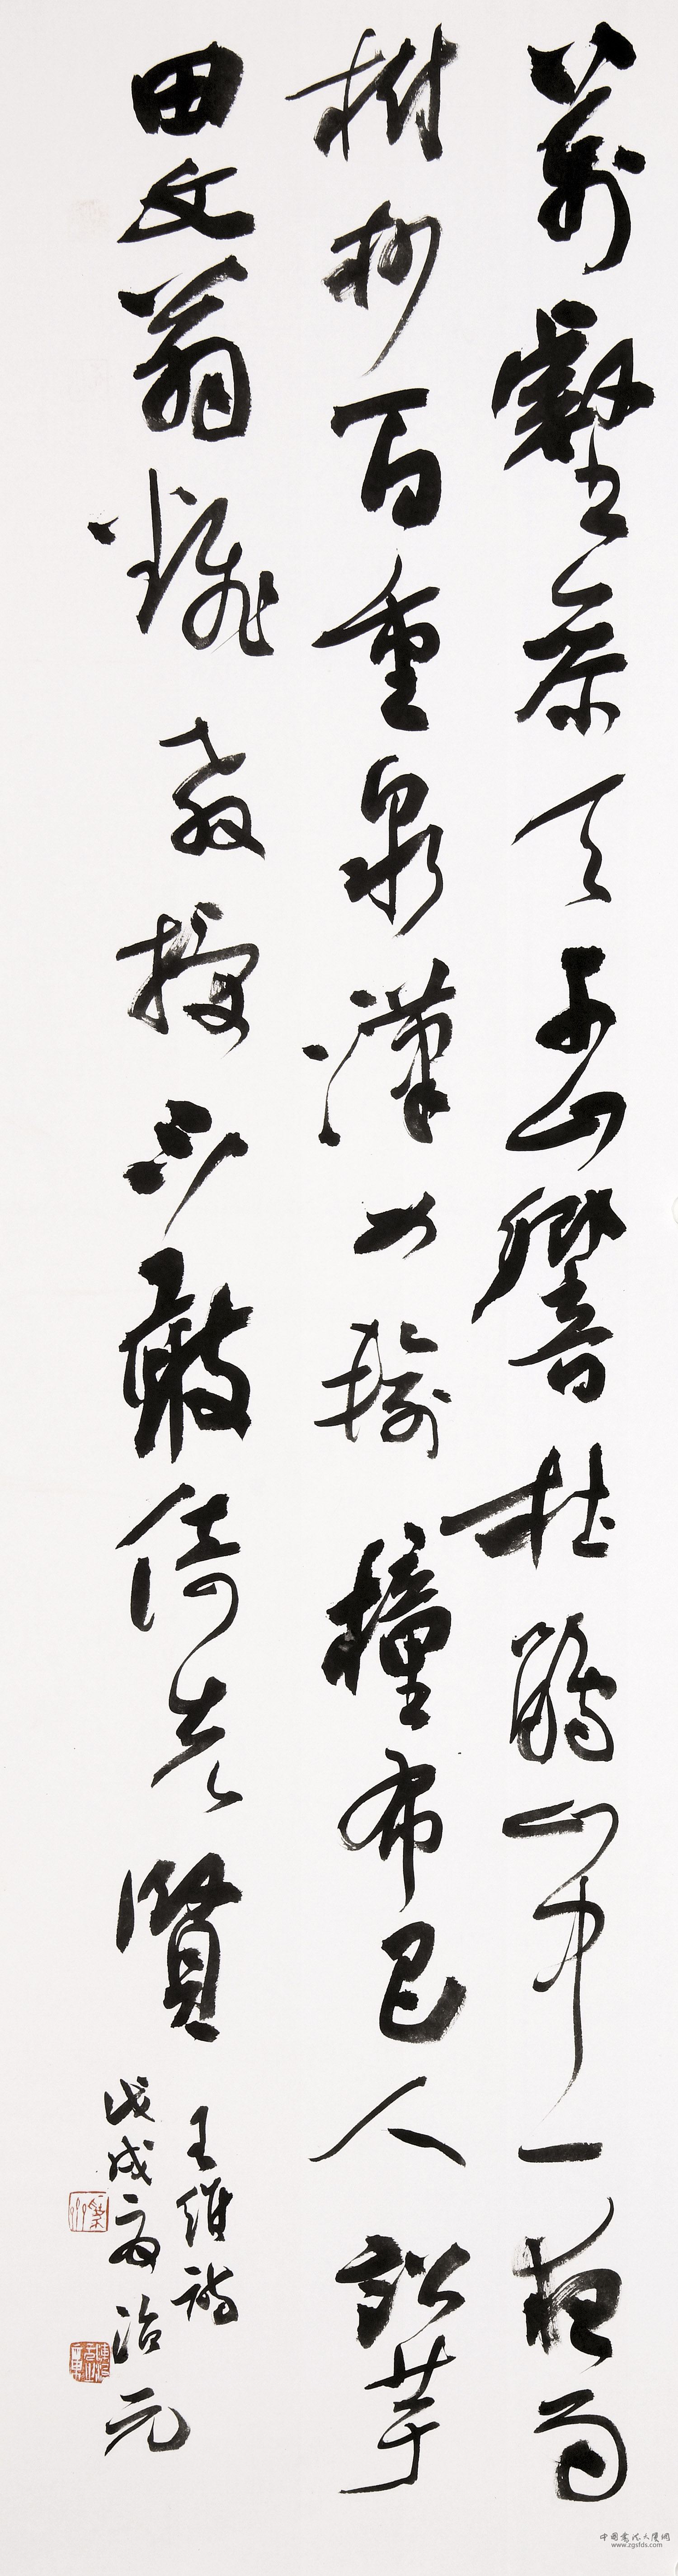 萬壑參天千山響杜鵑山中一夜雨
樹杪百重泉漢女輸橦布巴人訟芋
田文翁飜教授不敢倚先賢
王維詩
戊戌夏治元
中國書法大廈網
www.zgsfds.com